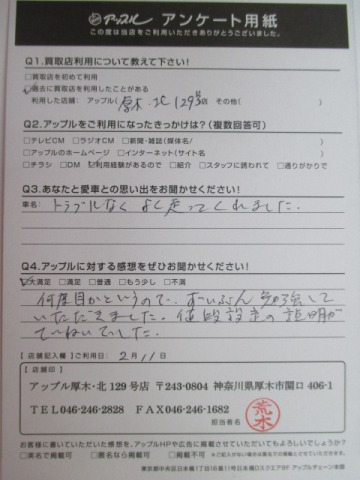 アップル アンケート用紙
この度は当店をご利用いただきありがとうございました。
Q1.買取店利用について教えて下さい!
□買取店を初めて利用
□過去に買取店を利用したことがある
利用した店舗: アップル(厚木・北129号店 その他( )
Q2.アップルをご利用になったきっかけは?(複数回答可)
□テレビCM □ラジオCM □新聞・雑誌(媒体名/ )
□アップルのホームページ □インターネット(サイト名 )
□チラシ □DM □利用経験があるので □紹介 □スタッフに誘われて □通りがかりで
Q3.あなたと愛車との思い出をお聞かせください!
車名: トラブルなく よく走ってくれました.
Q4.アップルに対する感想をぜひお聞かせください!
□大満足 □満足 □普通 □もう少し □不満
何度目かというので、ずいぶん勉強して
いただきました。値段設定の説明が
ていねいでした.
【店舗記入欄】ご利用日: 2月11日
【店舗印】
アップル厚木・北129号店 〒243-0804 神奈川県厚木市関口406-1
TEL046-246-2828 FAX046-246-1682
担当者名
荒木
お客様に書いていただいた感想を、アップルHPや広告に掲載させていただいてもよろしいでしょうか?
□実名で掲載可 □匿名なら掲載可 □掲載不可
東京都中央区日本橋1丁目16番11号日本橋Dスクエア8F アップルチェーン本部